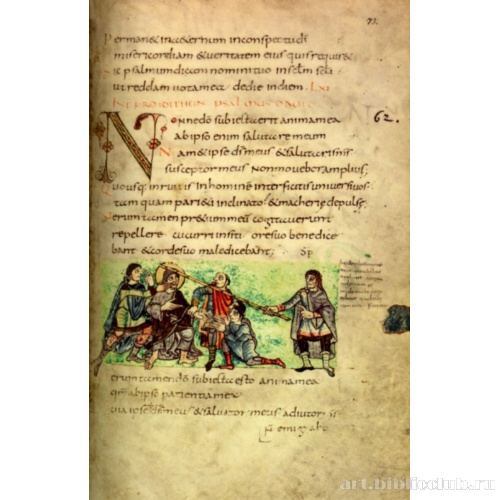 73.
Permaneτ in æternum inconspectu di
misericordiam & ueritatem eius quis requir&
Sic psalmum dicam nomini tuo in sclm scli
ut reddam uota mea dedie indiem. LXI
62.
Nonne do subiecta erit anima mea
ab ipso enim salutare meum
Nam & ipse ds meus & salutaris ms
susceptor meus non mouebor amplius;
Quousq; inruitis in homine interficitis uniuersi uos
tam quam pari&i inclinato & macherie depulse;
erum tamen pr&ium meu cogitauerunt
repellere cucurri insiti ore suo benedice
bant & corde suo maledicebant; Sp
erum tamen do subiecta esto anima mea
qm ab ipso patientia mea
uia ipse ds meus & saluator meus adiutor ms
emigrabo
art.biblioclub.ru